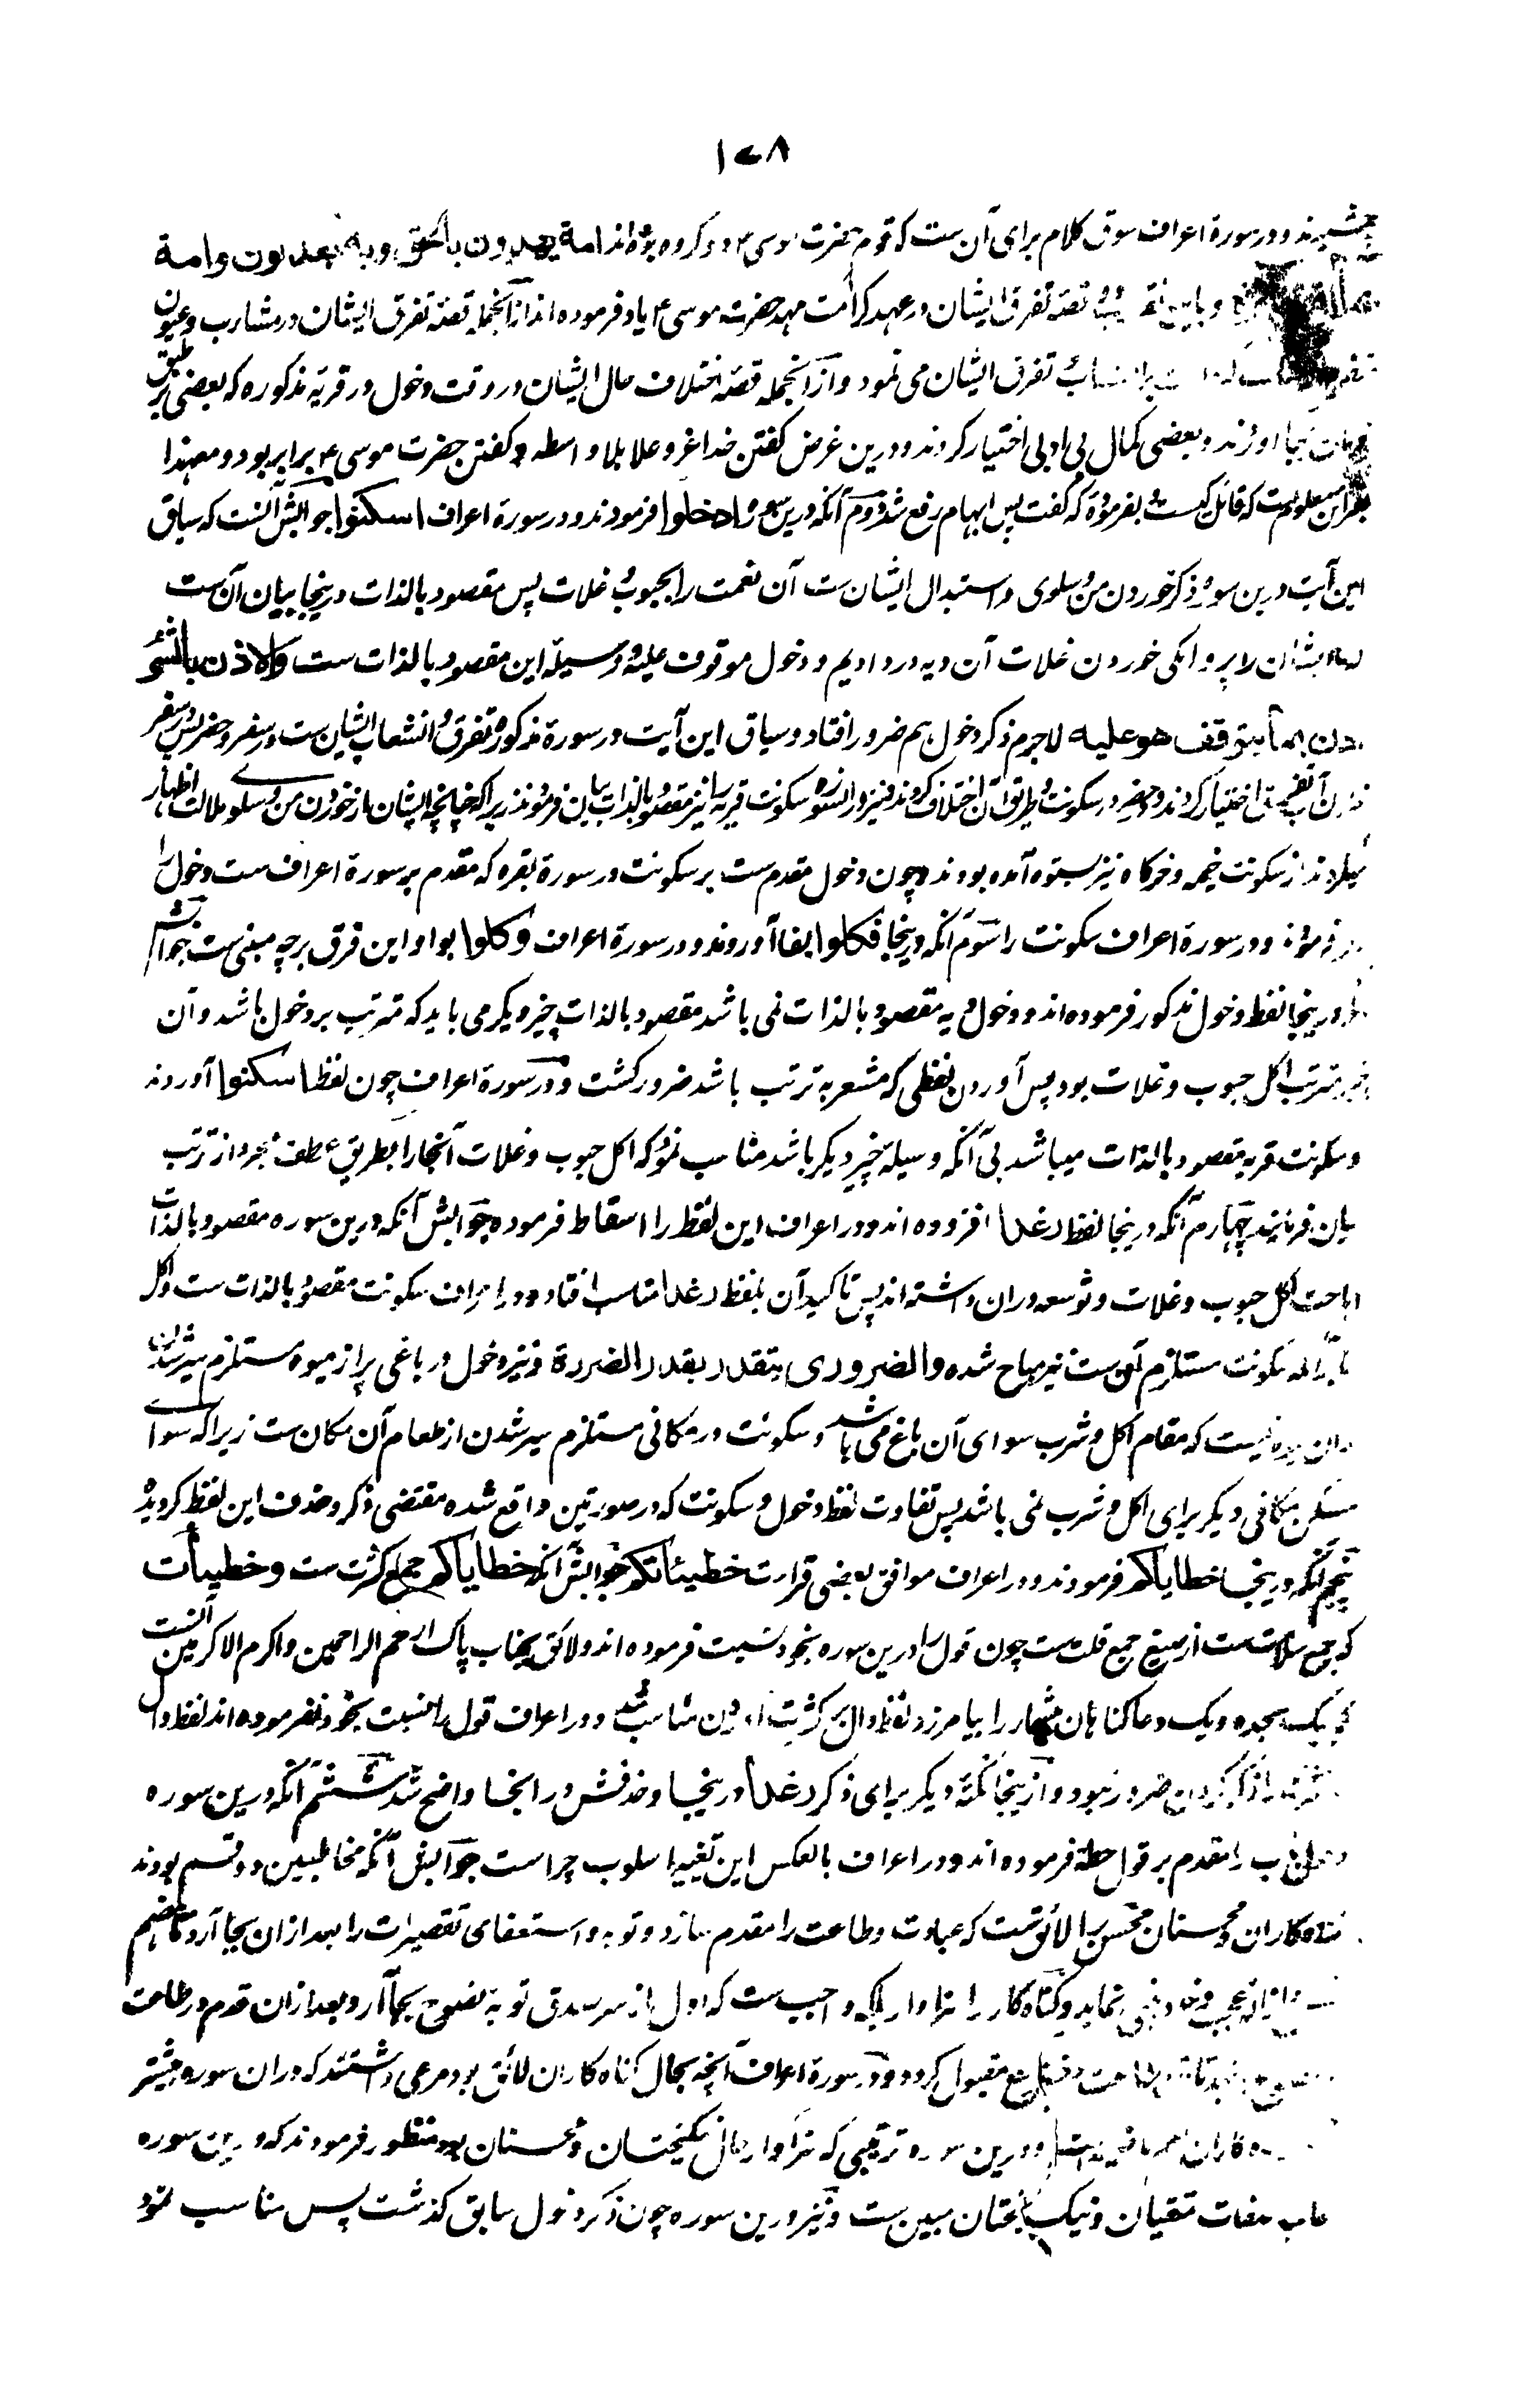 ۱۷۸
و در سورهٔ اعراف سوق کلام برای آن ست که قوم حضرت موسی ۴ دو گروه بوده اند امة یهدون بالحق و به یعدلون و امة
قصهٔ تفرق ایشان در عهد کرامت مهد حضرت موسی ۴ یاد فرموده اند ازآنجمله قصهٔ تفرق ایشان در مشارب و عیون
تفرق ایشان می نمود و ازآنجمله قصهٔ اختلاف حال ایشان در وقت دخول در قریهٔ مذکوره که بعضی بر طبق
بجا آوردند و بعضی کمال بی ادبی اختیار کردند و درین غرض گفتن خدا عز و علا بلا واسطه و گفتن حضرت موسی ۴ برابر بود و معهذا
معلوم ست که قائل کیست بفرموده که گفت پس ابهام رفع شد دوم آنکه درین سوره ادخلوا فرمودند و در سورهٔ اعراف اسکنوا جوابش آنست که سیاق
این آیت درین سوره ذکر خوردن من و سلوی و استبدال ایشان ست آن نعمت را بحبوب و غلات پس مقصود بالذات درینجا بیان آن ست
که ما ایشان را پروانگی خوردن غلات آن دیه در دادیم و دخول موقوف علیه و وسیلهٔ این مقصود بالذات ست والاذن بالشئ
اذن بما یتوقف هو علیه لاجرم ذکر دخول هم ضرور افتاد و سیاق این آیت در سورهٔ مذکوره تفرق و انشعاب ایشان ست در سفر و حضر پس در سفر
اختیار کردند و در حضر در سکونت و طریق آن اختلاف کردند و نیز در آن سوره سکونت قریه را نیز مقصود بالذات بیان فرمودند زیرا که چنانچه ایشان از خوردن من و سلوی ملالت اظهار
میکردند از سکونت خیمه و خرگاه نیز بستوه آمده بودند و چون دخول مقدم ست بر سکونت در سورهٔ بقره که مقدم بر سورهٔ اعراف ست دخول را
ذکر فرمودند و در سورهٔ اعراف سکونت را سوم آنکه درینجا فکلوا بفا آوردند و در سورهٔ اعراف وکلوا بواو این فرق بر چه مبنی ست جوابش
آنکه درینجا لفظ دخول مذکور فرموده اند و دخول دیه مقصود بالذات نمی باشد مقصود بالذات چیز دیگر می باید که مترتب بر دخول باشد و آن
چیز مترتب اکل حبوب و غلات بود پس آوردن لفظی که مشعر به ترتب باشد ضرور گشت و در سورهٔ اعراف چون لفظ اسکنوا آوردند
و سکونت قریه مقصود بالذات میباشد بی آنکه وسیلهٔ چیز دیگر باشد مناسب نمود که اکل حبوب و غلات آنجا را بطریق عطف مجرد از ترتب
بیان فرمایند چهارم آنکه درینجا لفظ رغدا افزوده اند و در اعراف این لفظ را اسقاط فرموده جوابش آنکه درین سوره مقصود بالذات
اباحت اکل حبوب و غلات و توسعه دران داشته اند پس تاکید آن بلفظ رغدا مناسب افتاد و در اعراف سکونت مقصود بالذات ست و اکل
بنابر آنکه سکونت مستلزم آن ست نیز مباح شده والضروری یتقدر بقدر الضرورة و نیز دخول در باغی پر از میوه مستلزم سیر شدن
ازان میوه نیست که مقام اکل و شرب سوای آن باغ می باشد و سکونت در مکانی مستلزم سیر شدن از طعام آن مکان ست زیرا که سوای
مسکن مکانی دیگر برای اکل و شرب نمی باشد پس تفاوت لفظ دخول و سکونت که در صورتین واقع شده مقتضی ذکر و حذف این لفظ گردید
پنجم آنکه درینجا خطایاکم فرمودند و در اعراف موافق بعضی قرارت خطیئاتکم جوابش آنکه خطایاکم جمع کثرت ست و خطیئات
که جمع سلامت ست از صیغ جمع قلت ست چون قول را درین سوره بخود نسبت فرموده اند و لائق بجناب پاک ارحم الراحمین و اکرم الاکرمین آنست
که بیک سجده و یک دعا گناهان بیشمار را بیامرزد لفظ دال بر کثرت آوردن مناسب شد و در اعراف قول را نسبت بخود نفرموده اند لفظ دال
ضرور نبود و ازینجا نکتهٔ دیگر برای ذکر رغدا درینجا و حذفش در آنجا واضح شد ششم آنکه درین سوره
دخول باب را مقدم بر قول حطة فرموده اند و در اعراف بالعکس این تغییر اسلوب چراست جوابش آنکه مخاطبین دو قسم بودند
گناه کاران و محسنان محسن را لائق ست که عبادت و طاعت را مقدم سازد و توبه و استغفای تقصیرات را بعد ازان بجا آرد تا هضم
نفس و ازالهٔ عجب نماید و گناه کار را سزاوار بلکه واجب ست که اول از سر صدق توبهٔ نصوح بجا آرد و بعد ازان قدم در طاعت
مقبول گردد و در سورهٔ اعراف آنچه بحال گناه کاران لائق بود مرعی داشتند که دران سوره بیشتر
و درین سوره ترتیبی که سزاوار حال نیکبختان و محسنان بود منظور فرمودند که درین سوره
صفات متقیان و نیک بختان مبین ست و نیز درین سوره چون ذکر دخول سابق گذشت پس مناسب نمود